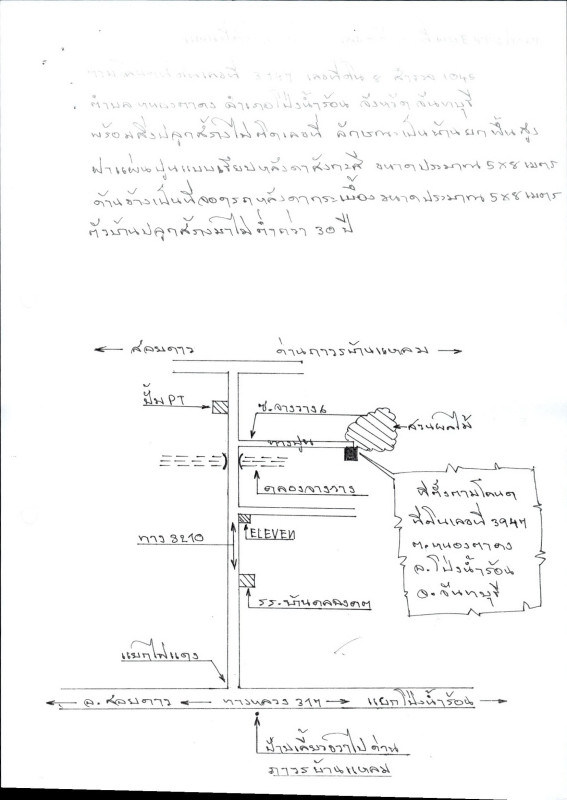 ตำบล หนองตาคง อำเภอโป่งน้ำร้อน จังหวัด จันทบุรี
พร้อมสิ่งปลูกสร้างไม่ติดเลขที่ ลักษณะเป็นบ้านยกพื้นสูง
ฝาแผ่นปูนแบบเรียบหลังคาสังกะสี ขนาดประมาณ 5x8 เมตร
ด้านข้างเป็นที่จอดรถหลังคากระเบื้อง ขนาดประมาณ 5x8 เมตร
ตัวบ้านปลูกสร้างมาไม่ต่ำกว่า 30 ปี
สอยดาว
ด่านถาวรบ้านแหลม
ปั้ม PT
ซ.จางวาง 6
สวนผลไม้
ทางปูน
คลองจางวาง
ที่ตั้งตามโฉนด
ที่ดินเลขที่ 3947
ต.หนองตาคง
อ.โป่งน้ำร้อน
จ.จันทบุรี
ทาง 3210
ELEVEN
รร.บ้านคลองคต
แยกไฟแดง
อ.สอยดาว
ทางหลวง 317
แยกโป่งน้ำร้อน
ป้ายเลี้ยวขวาไปด่าน
ถาวรบ้านแหลม